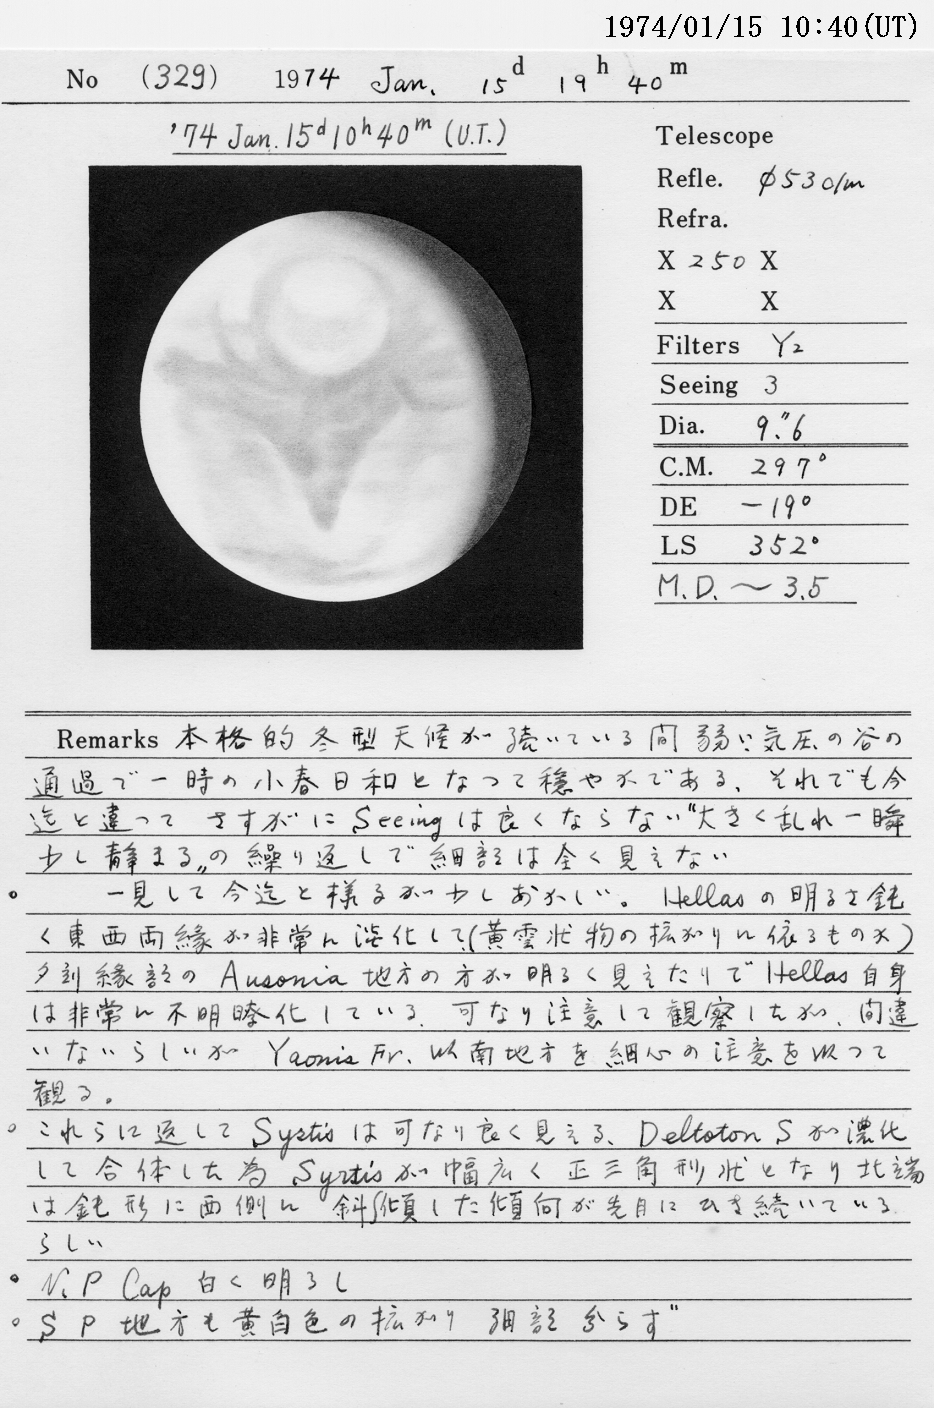 1974/01/15 10:40(UT)
No (329) 1974 Jan. 15d 19h 40m
'74 Jan. 15d 10h 40m (U.T.)
Telescope
Refle. φ530/m
Refra.
X 250 X
X X
Filters Y2
Seeing 3
Dia. 9."6
C.M. 297°
DE -19°
LS 352°
M.D. ～3.5
Remarks 本格的冬型天候が続いている間弱い気圧の谷の
通過で一時の小春日和となって穏やかである、それでも今
迄と違って さすがに Seeingは良くならない"大きく乱れ一瞬
少し静まる"の繰り返しで細部は全く見えない
。 一見して今迄と様子が少しおかしい。Hellasの明るさ鈍
く東西両縁が非常に淡化して(黄雲状物の拡がりに依るものか)
夕刻縁部の Ausonia 地方の方が明るく見えたりでHellas自身
は非常に不明瞭化している、可なり注意して観察したが、間違
いないらしいが Yaonis Fr. 以南地方を細心の注意を以って
観る。
。これらに返して Syrtisは可なり良く見える、Deltoton Sが濃化
して合体した為 Syrtisが幅広く正三角形状となり北端
は鈍形に西側に 斜傾した傾向が先月にひき続いている
らしい
。N.P Cap 白く明るし
。S P 地方も黄白色の拡がり 細部分らず"